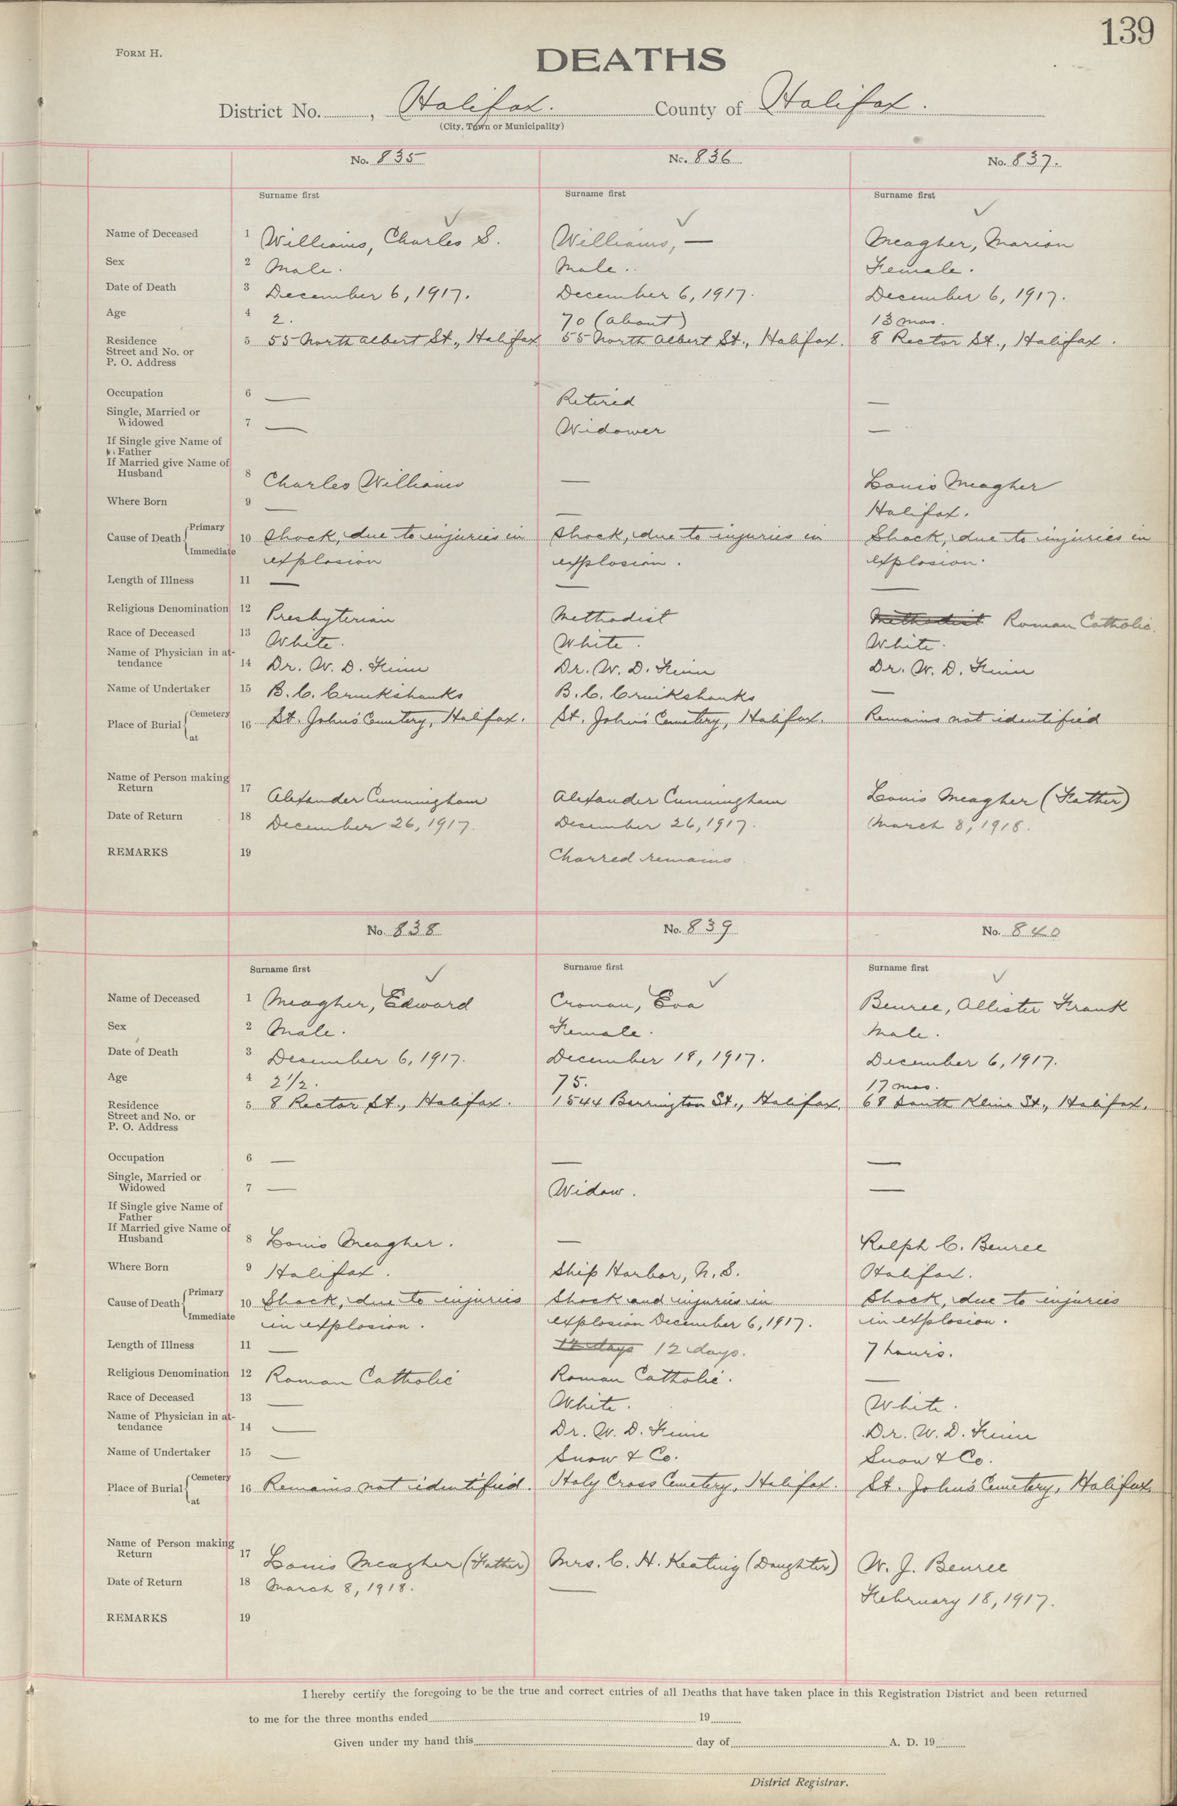 139
FORM H.
DEATHS
District No. , Halifax. County of Halifax.
(City, Town or Municipality)
No. 835 No. 836 No. 837.
Surname first Surname first Surname first
Name of Deceased 1 Williams, Charles S. Williams, — Meagher, Marion
Sex 2 Male. Male. Female.
Date of Death 3 December 6, 1917. December 6, 1917. December 6, 1917.
Age 4 2. 70 (about) 13 mos.
Residence 5 55 North Albert St., Halifax 55 North Albert St., Halifax. 8 Rector St., Halifax.
Street and No. or
P. O. Address
Occupation 6 — Retired —
Single, Married or
Widowed 7 — Widower —
If Single give Name of
Father
If Married give Name of
Husband 8 Charles Williams — Louis Meagher
Where Born 9 — — Halifax.
Cause of Death { Primary 10 Shock, due to injuries in Shock, due to injuries in Shock, due to injuries in
Immediate explosion explosion. explosion.
Length of Illness 11 — — —
Religious Denomination 12 Presbyterian Methodist Methodist Roman Catholic.
Race of Deceased 13 White. White. White.
Name of Physician in at-
tendance 14 Dr. W. D. Finn Dr. W. D. Finn Dr. W. D. Finn
Name of Undertaker 15 B. C. Cruikshanks B. C. Cruikshanks —
Place of Burial { Cemetery 16 St. John's Cemetery, Halifax. St. John's Cemetery, Halifax. Remains not identified
at
Name of Person making
Return 17 Alexander Cunningham Alexander Cunningham Louis Meagher (Father)
Date of Return 18 December 26, 1917. December 26, 1917. March 8, 1918.
REMARKS 19 Charred remains.
No. 838 No. 839 No. 840
Surname first Surname first Surname first
Name of Deceased 1 Meagher, Edward Cronan, Eva Benree, Allister Frank
Sex 2 Male. Female. Male.
Date of Death 3 December 6, 1917. December 18, 1917. December 6, 1917.
Age 4 2½. 75. 17 mos.
Residence 5 8 Rector St., Halifax. 1544 Barrington St., Halifax. 68 South Kline St., Halifax.
Street and No. or
P. O. Address
Occupation 6 — — —
Single, Married or
Widowed 7 — Widow. —
If Single give Name of
Father
If Married give Name of
Husband 8 Louis Meagher. — Ralph C. Benree
Where Born 9 Halifax. Ship Harbor, N.S. Halifax.
Cause of Death { Primary 10 Shock, due to injuries Shock and injuries in Shock, due to injuries
Immediate in explosion. explosion December 6, 1917. in explosion.
Length of Illness 11 — 12 days 12 days. 7 hours.
Religious Denomination 12 Roman Catholic Roman Catholic. —
Race of Deceased 13 — White. White.
Name of Physician in at-
tendance 14 — Dr. W. D. Finn Dr. W. D. Finn
Name of Undertaker 15 — Snow & Co. Snow & Co.
Place of Burial { Cemetery 16 Remains not identified. Holy Cross Cemetery, Halifax. St. John's Cemetery, Halifax.
at
Name of Person making
Return 17 Louis Meagher (Father) Mrs. C. H. Keating (Daughter) W. J. Benree
Date of Return 18 March 8, 1918. — February 18, 1917.
REMARKS 19
I hereby certify the foregoing to be the true and correct entries of all Deaths that have taken place in this Registration District and been returned
to me for the three months ended 19
Given under my hand this day of A. D. 19
District Registrar.